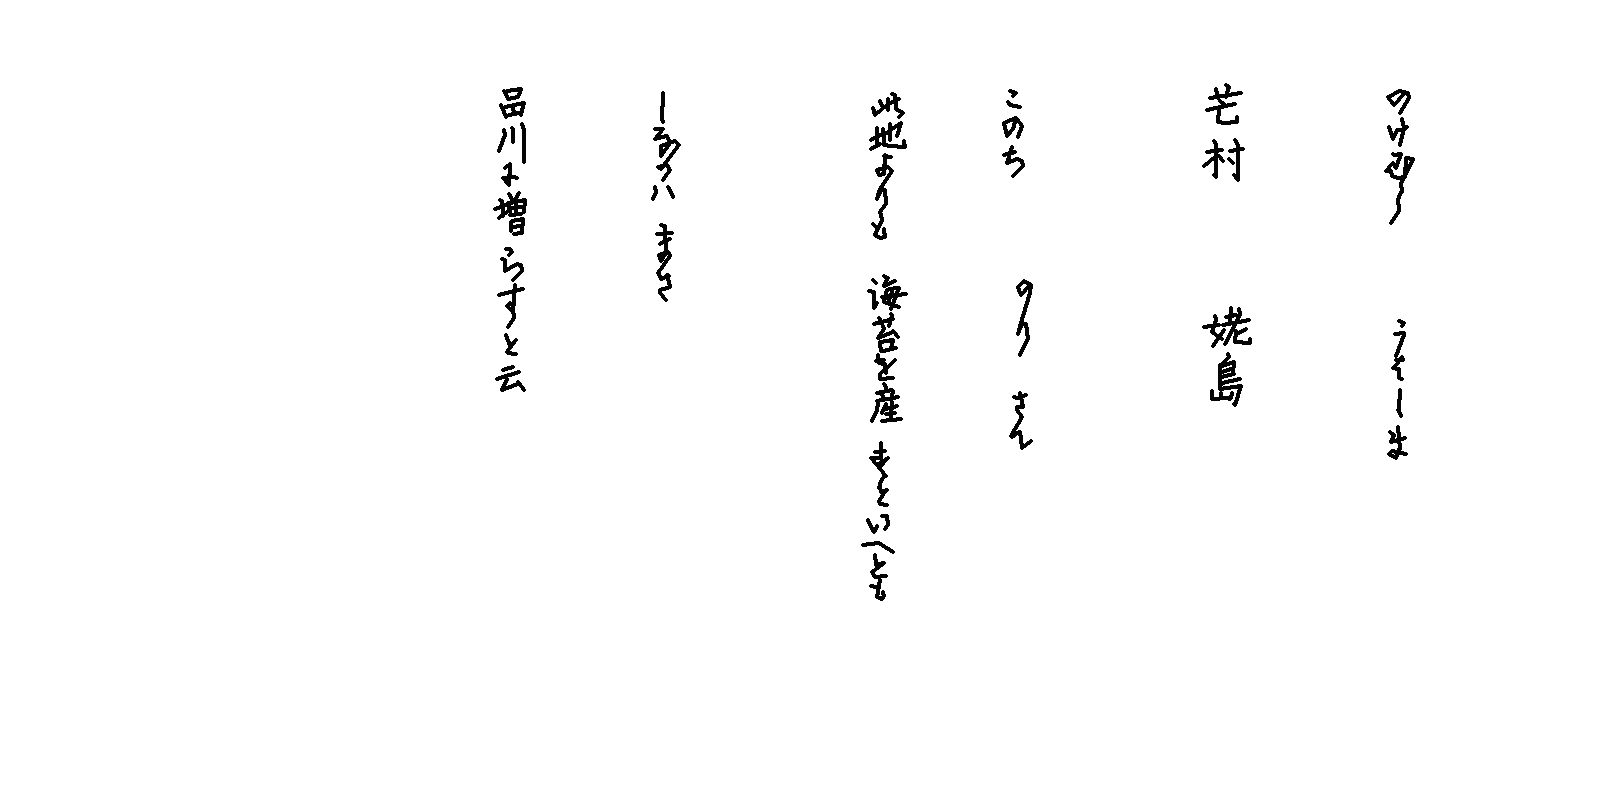 のけむら うそしま
芒村 姥島
このち のり さん
此地よりも 海苔を産すといへとも
しなかハ まさ
品川に増らすと云